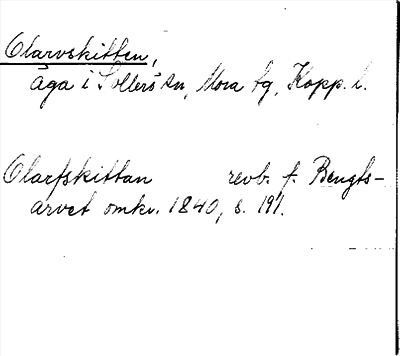 Olarvskitten,
äga i Sollerö sn, Mora tg, Kopp. l.
Olarfskittan revb. f. Bengts-
arvet omkr. 1840, s. 191.